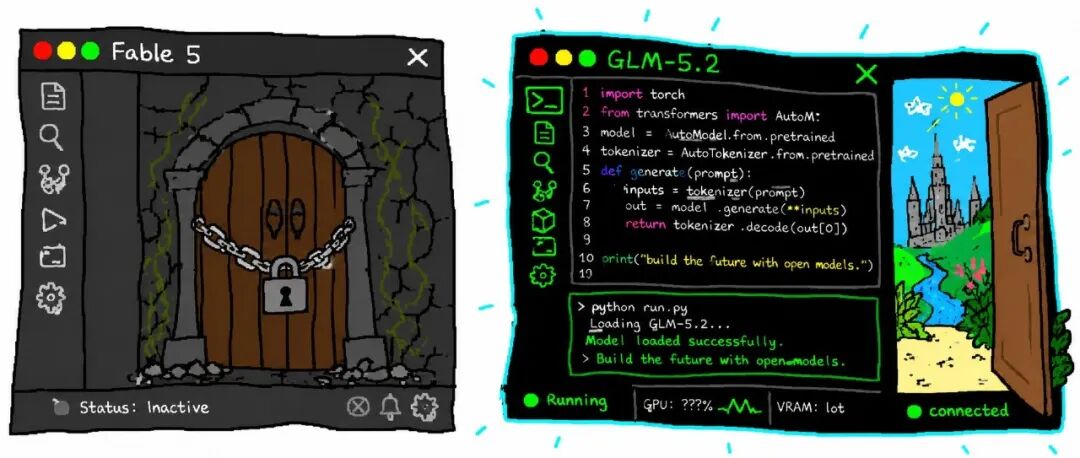 Fable 5
Status: Inactive
GLM-5.2
>_
1 import torch
2 from transformers import AutoM:
3 model = AutoModel.from.pretrained
4 tokenizer = AutoTokenizer.from.pretrained
5 def generate(prompt):
6 inputs = tokenizer(prompt)
7 out = model .generate(**inputs)
8 return tokenizer .decode(out[0])
9
10 print("build the future with open models.")
19
> python run.py
Loading GLM-5.2...
Model loaded successfully.
> Build the future with open models.
Running
GPU: ???%
VRAM: lot
connected